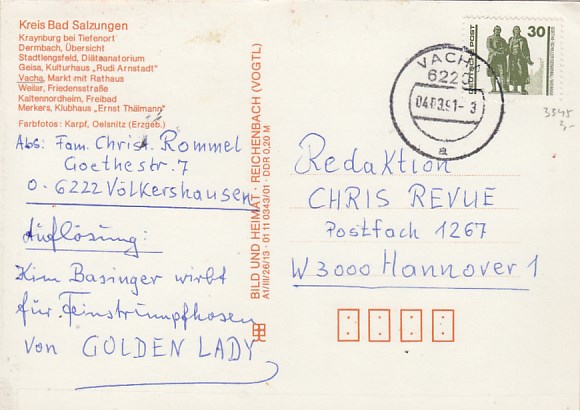 Kreis Bad Salzungen
Kraynburg bei Tiefenort
Dermbach, Übersicht
Stadtlengsfeld, Diätsanatorium
Geisa, Kulturhaus „Rudi Arnstadt“
Vacha, Markt mit Rathaus
Weilar, Friedensstraße
Kaltennordheim, Freibad
Merkers, Klubhaus „Ernst Thälmann“
Farbfotos: Karpf, Oelsnitz (Erzgeb.)
Abs: Fam. Christ. Rommel
Goethestr. 7
O-6222 Völkershausen
Auflösung:
Kim Basinger wirbt
für Feinstrumpfhosen
von GOLDEN LADY
BILD UND HEIMAT · REICHENBACH (VOGTL)
A1/III/26/13 · 01 11 0343/01 · DDR 0,20 M
30
DEUTSCHE POST
VACHA
6220
04.03.91-3
a
3345
2,-
Redaktion
CHRIS REVUE
Postfach 1267
W 3000 Hannover 1